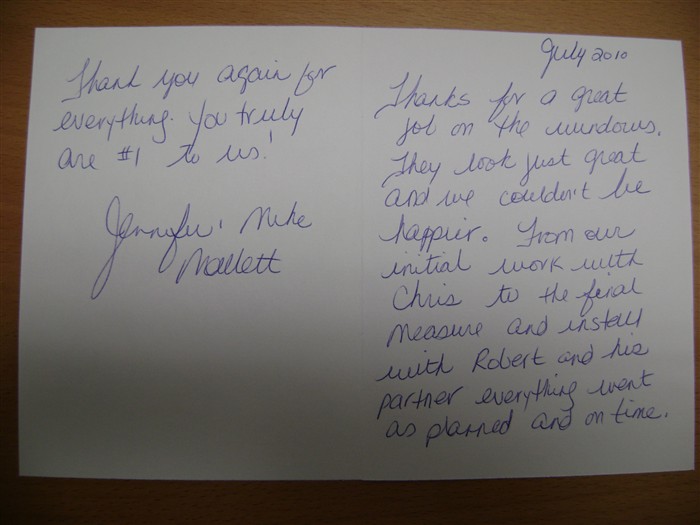 July 2010
Thanks for a great
job on the windows.
They look just great
and we couldn't be
happier. From our
initial work with
Chris to the final
measure and install
with Robert and his
partner everything went
as planned and on time.
Thank you again for
everything. You truly
are #1 to us!
Jennifer & Mike
Mallett